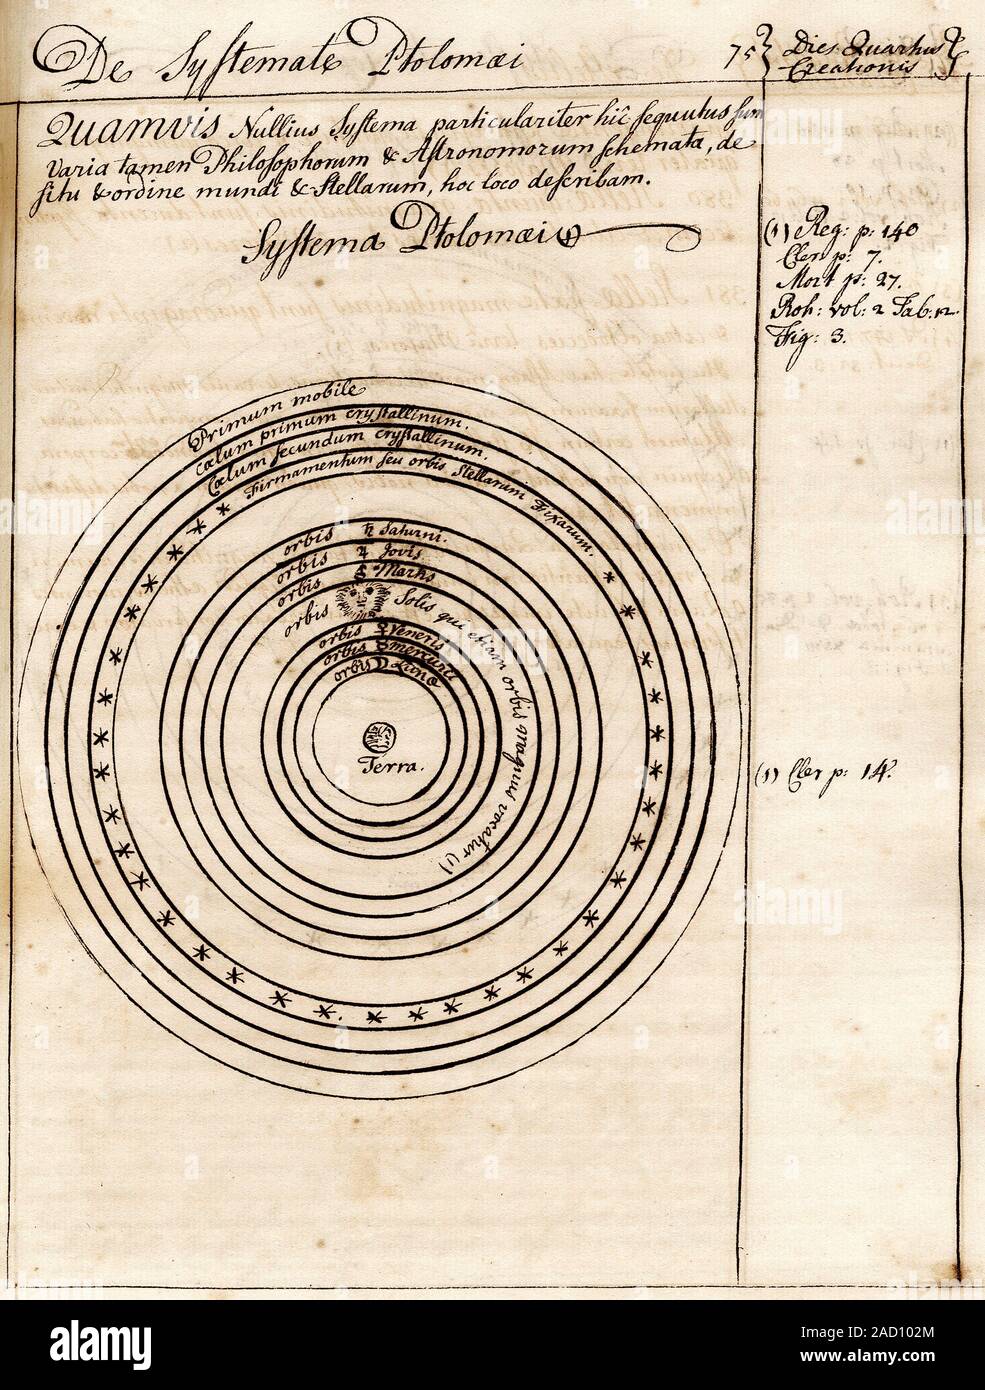 De Systemate Ptolomæi
75
Dies Quartus
Creationis
Quamvis Nullius Systema particulariter hic sequutus sum
varia tamen Philosophorum & Astronomorum schemata, de
situ & ordine mundi & Stellarum, hoc loco describam.
Systema Ptolomæi
(1) Reg: p: 140
Cler p: 7.
Mort p: 27.
Roh: vol: 2 Tab: 12.
Fig: 3.
Primum mobile
Cœlum primum crystallinum.
Cœlum secundum crystallinum.
Firmamentum seu orbis Stellarum Fixarum.
orbis ♄ Saturni.
orbis ♃ Jovis.
orbis ♂ Martis
orbis Solis qui etiam orbis magnus vocatur (1)
orbis ♀ Veneris
orbis ☿ mercurii
orbis ☽ Lunæ
Terra.
(1) Cler p: 14.
alamy
Image ID: 2AD102M
www.alamy.com